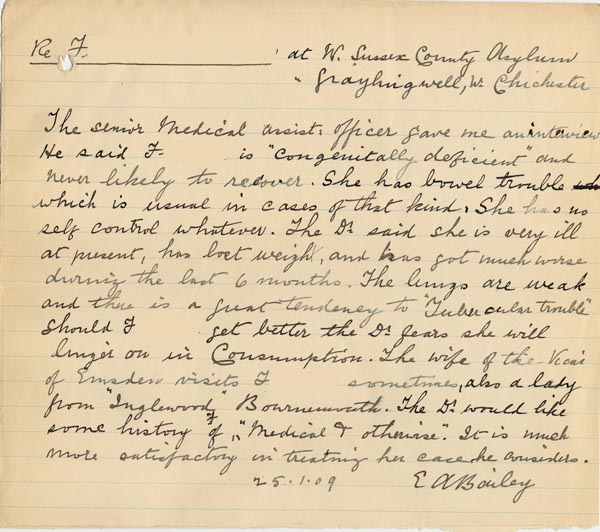 Re F. at W. Sussex County Asylum
" Graylingwell, Nr Chichester
The senior Medical assist: officer gave me an interview
He said F is "congenitally deficient" and
never likely to recover. She has bowel trouble
which is usual in cases of that kind. She has no
self control whatever. The Dr said she is very ill
at present, has lost weight, and has got much worse
during the last 6 months. The lungs are weak
and there is a great tendency to "Tubercular trouble"
Should F get better the Dr fears she will
linger on in Consumption. The wife of the Vicar
of Emsden visits F sometimes, also a lady
from "Inglewood" Bournemouth. The Dr would like
some history of F "Medical & otherwise". It is much
more satisfactory in treating her case he considers.
25.1.09 E A Bailey